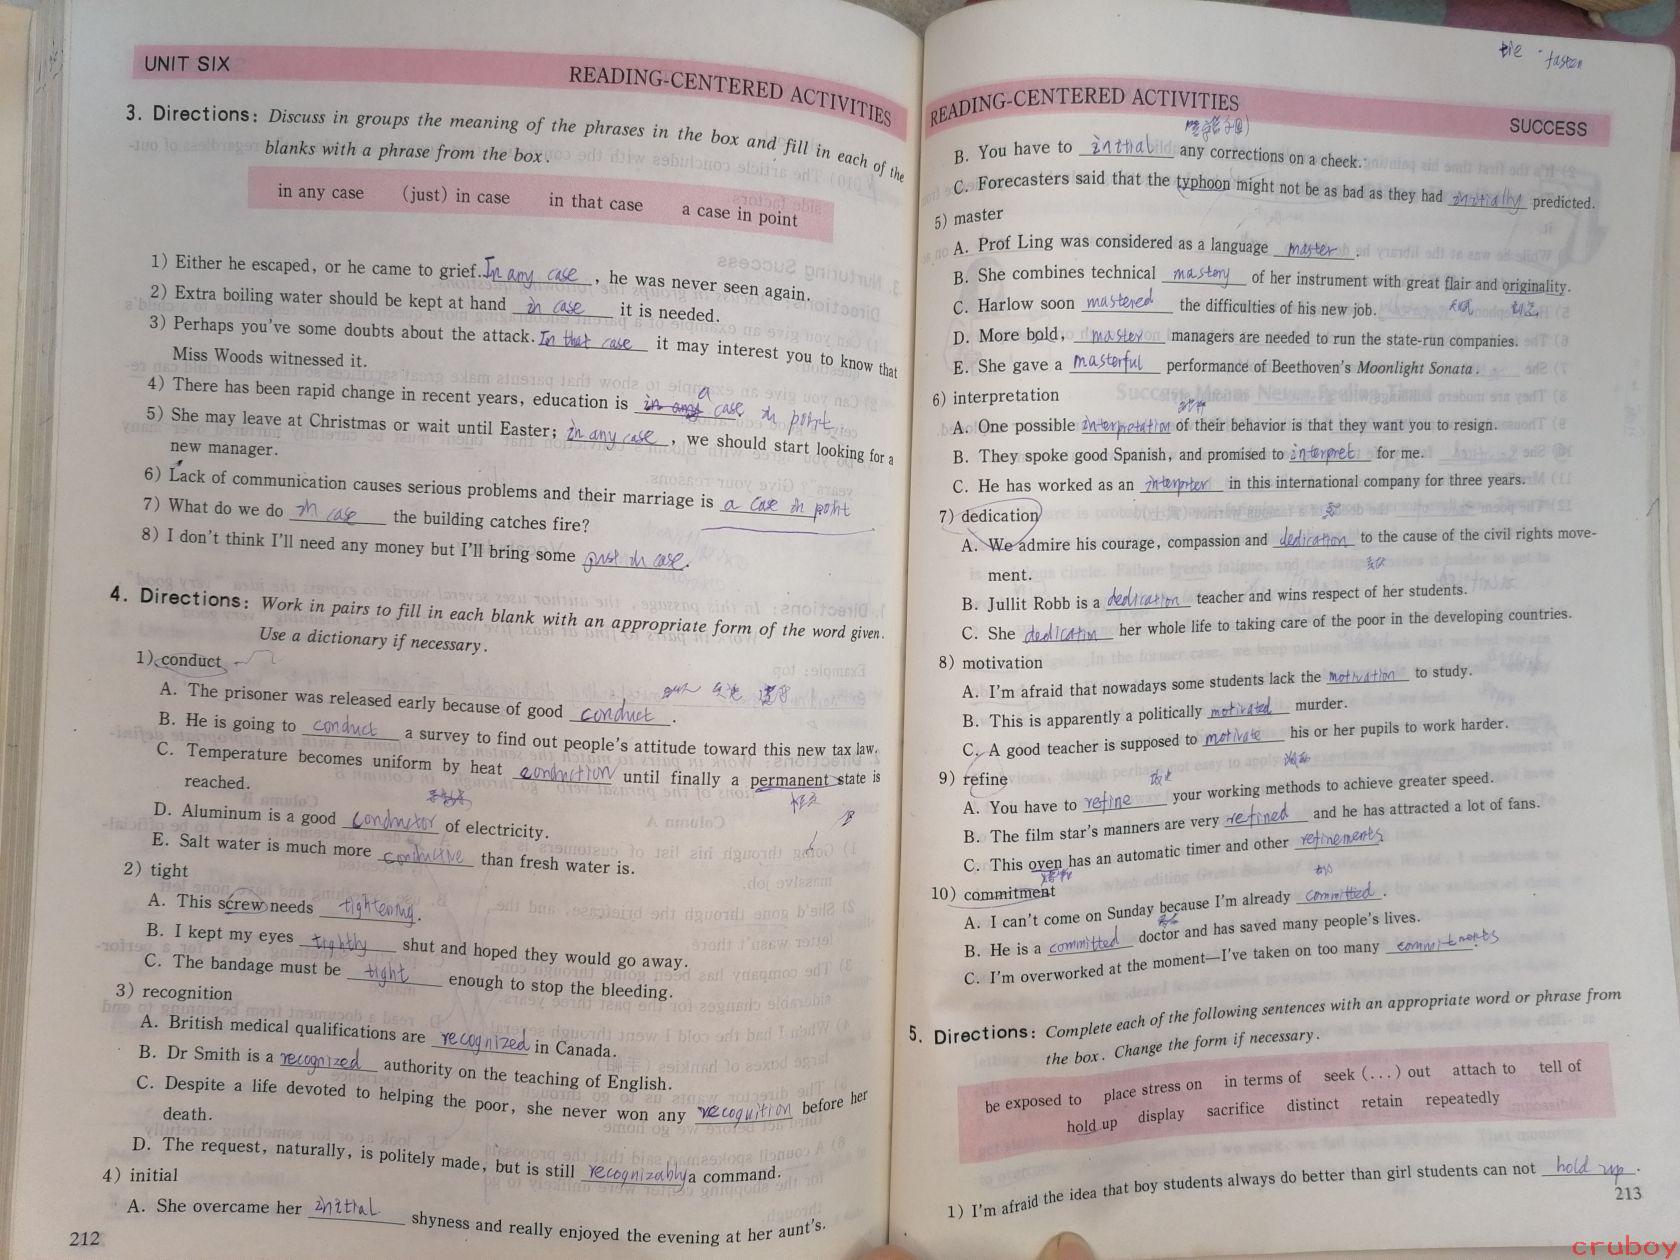 UNIT SIX
READING-CENTERED ACTIVITIES
3. Directions: Discuss in groups the meaning of the phrases in the box and fill in each of the
blanks with a phrase from the box.
in any case (just) in case in that case a case in point
1) Either he escaped, or he came to grief. In any case, he was never seen again.
2) Extra boiling water should be kept at hand in case it is needed.
3) Perhaps you've some doubts about the attack. In that case it may interest you to know that
Miss Woods witnessed it.
4) There has been rapid change in recent years, education is a case in point
5) She may leave at Christmas or wait until Easter; in any case, we should start looking for a
new manager.
6) Lack of communication causes serious problems and their marriage is a case in point
7) What do we do in case the building catches fire?
8) I don't think I'll need any money but I'll bring some just in case.
4. Directions: Work in pairs to fill in each blank with an appropriate form of the word given.
Use a dictionary if necessary.
1) conduct
A. The prisoner was released early because of good conduct.
B. He is going to conduct a survey to find out people's attitude toward this new tax law.
C. Temperature becomes uniform by heat conduction until finally a permanent state is
reached.
D. Aluminum is a good conductor of electricity.
E. Salt water is much more conductive than fresh water is.
2) tight
A. This screw needs tightening.
B. I kept my eyes tightly shut and hoped they would go away.
C. The bandage must be tight enough to stop the bleeding.
3) recognition
A. British medical qualifications are recognized in Canada.
B. Dr Smith is a recognized authority on the teaching of English.
C. Despite a life devoted to helping the poor, she never won any recognition before her
death.
D. The request, naturally, is politely made, but is still recognizably a command.
4) initial
A. She overcame her initial shyness and really enjoyed the evening at her aunt's.
212
tie fasten
READING-CENTERED ACTIVITIES
SUCCESS
B. You have to initial any corrections on a check.
C. Forecasters said that the typhoon might not be as bad as they had initially predicted.
5) master
A. Prof Ling was considered as a language master.
B. She combines technical mastery of her instrument with great flair and originality.
C. Harlow soon mastered the difficulties of his new job.
D. More bold, master managers are needed to run the state-run companies.
E. She gave a masterful performance of Beethoven's Moonlight Sonata.
6) interpretation
A. One possible interpretation of their behavior is that they want you to resign.
B. They spoke good Spanish, and promised to interpret for me.
C. He has worked as an interpreter in this international company for three years.
7) dedication
A. We admire his courage, compassion and dedication to the cause of the civil rights move-
ment.
B. Jullit Robb is a dedication teacher and wins respect of her students.
C. She dedication her whole life to taking care of the poor in the developing countries.
8) motivation
A. I'm afraid that nowadays some students lack the motivation to study.
B. This is apparently a politically motivated murder.
C. A good teacher is supposed to motivate his or her pupils to work harder.
9) refine
A. You have to refine your working methods to achieve greater speed.
B. The film star's manners are very refined and he has attracted a lot of fans.
C. This oven has an automatic timer and other refinements.
10) commitment
A. I can't come on Sunday because I'm already committed.
B. He is a committed doctor and has saved many people's lives.
C. I'm overworked at the moment—I've taken on too many commitments
5. Directions: Complete each of the following sentences with an appropriate word or phrase from
the box. Change the form if necessary.
be exposed to place stress on in terms of seek (...) out attach to tell of
hold up display sacrifice distinct retain repeatedly
1) I'm afraid the idea that boy students always do better than girl students can not hold up.
213
cruboy